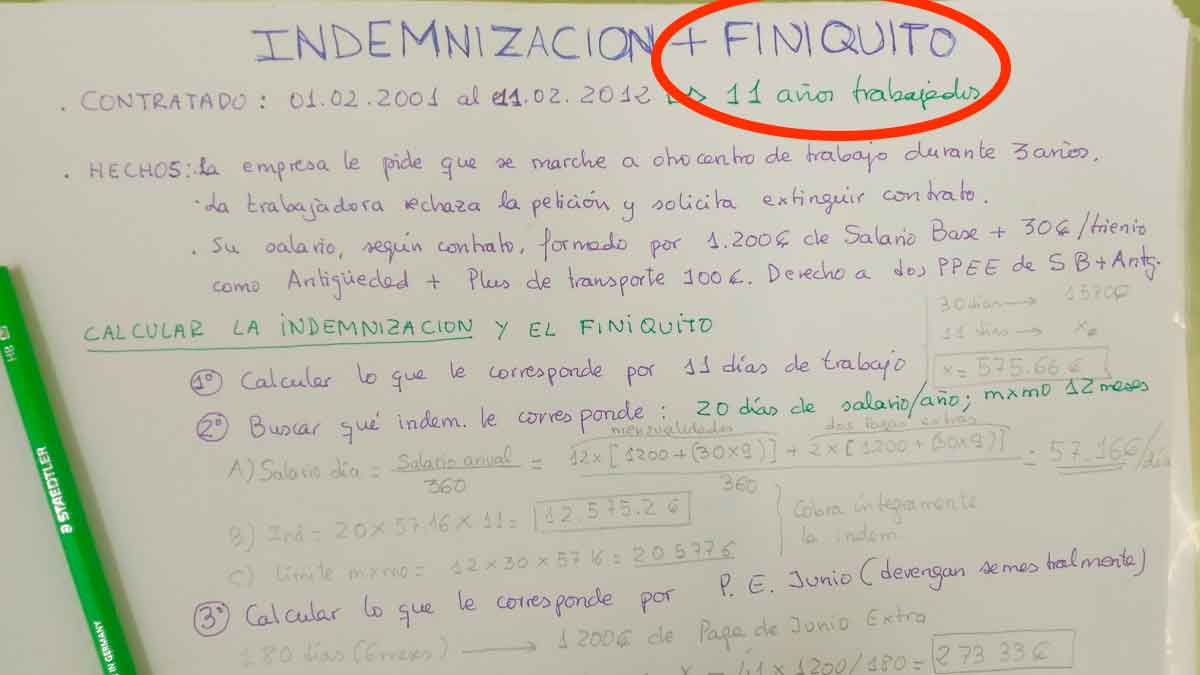 INDEMNIZACION + FINIQUITO
. CONTRATADO: 01.02.2001 al 11.02.2012 => 11 años trabajados
. HECHOS: La empresa le pide que se marche a otro centro de trabajo durante 3 años.
· La trabajadora rechaza la petición y solicita extinguir contrato.
. Su salario, según contrato, formado por 1.200€ de Salario Base + 30€/trienio
como Antigüedad + Plus de transporte 100€. Derecho a dos PPEE de SB+Antg.
30 dias → 1570€
11 dias →
CALCULAR LA INDEMNIZACION Y EL FINIQUITO
x = 575.66 €
1º Calcular lo que le corresponde por 11 días de trabajo
2º Buscar qué indem. le corresponde: 20 días de salario/año; mxmo 12 meses
mensualidades dos pagas extras
A) Salario día = Salario anual / 360 = 12x[1200+(30x9)] + 2x[1200+(30x9)] / 360 = 57.16€/día
B) Ind = 20x57.16x11 = 12.575.2€
Cobra íntegramente
la indem
C) Límite mxmo = 12x30x57.16 = 20577€
3º Calcular lo que le corresponde por P.E. Junio (devengan semestralmente)
180 días (6 meses) → 1200€ de Paga de Junio Extra
x = 41x1200/180 = 273 33€
STAEDTLER
HB
IN GERMANY